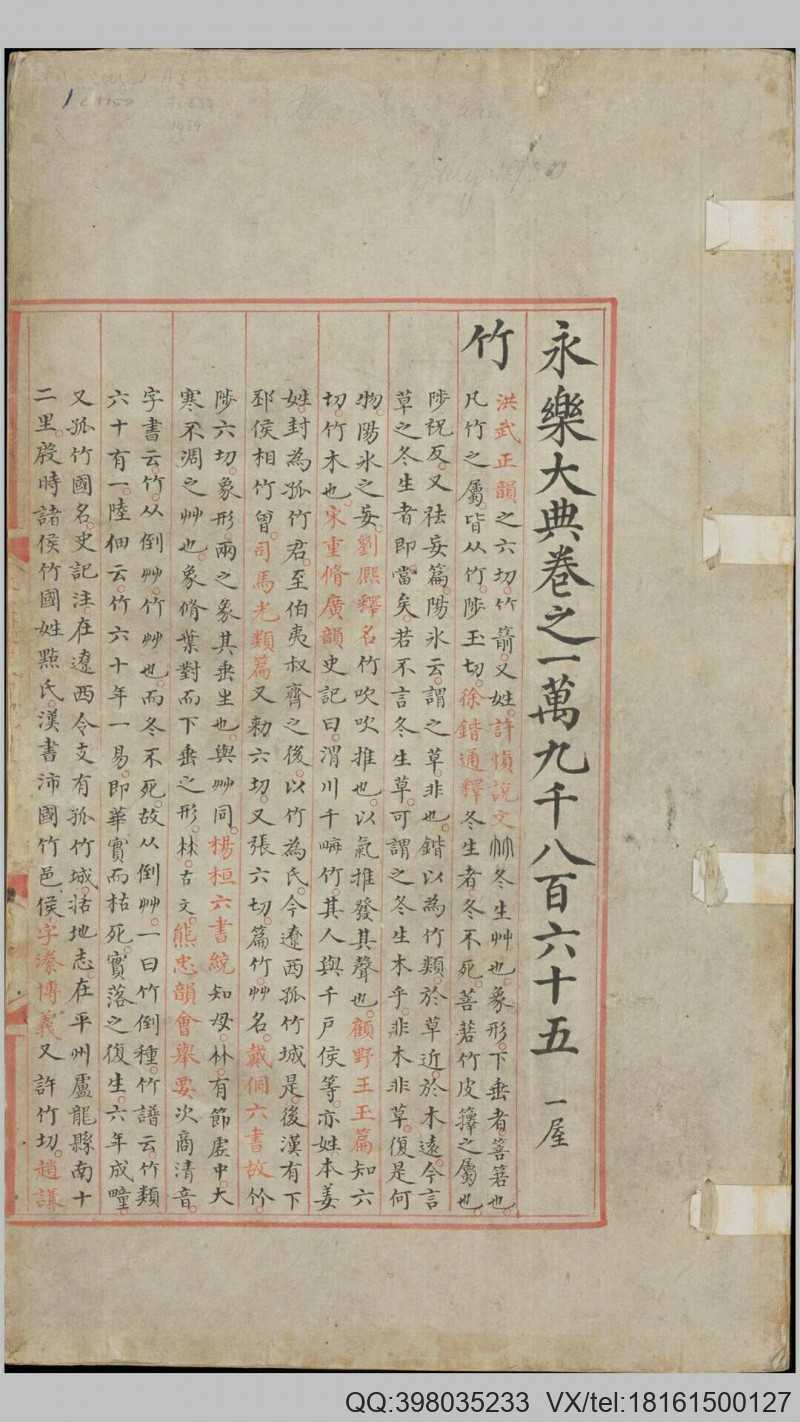 永樂大典卷之一萬九千八百六十五 一屋
竹
洪武正韻之六切。竹箭。又姓。許慎說文冬生艸也。象形。下垂者箁箬也。
凡竹之屬。皆从竹。陟玉切。徐鍇通釋冬生者冬不死。箁若竹皮籜之屬也。
陟祝反。又祛妄篇。陽氷云。謂之草。非也。鍇以為竹類。於草近。於木遠。今言
草之冬生者即當矣。若不言冬生草。可謂之冬生木乎。非木非草。復是何
物。陽氷之妄。劉熈釋名竹吹吹推也。以氣推發其聲也。顧野王玉篇知六
切。竹木也。宋重脩廣韻史記曰。渭川千畝竹。其人與千戶侯等。亦姓本姜
姓。封為孤竹君。至伯夷叔齊之後。以竹為氏。今遼西孤竹城是。後漢有下
邳侯相竹曾。司馬光類篇又勑六切。又張六切。篇竹。艸名。戴侗六書故
陟六切。象形兩之象其垂生也。與艸同。楊桓六書統知母。有節虛中。大
寒不凋之艸也。象脩葉對而下垂之形。古文。熊忠韻會舉要次商清音。
字書云。竹。从倒艸。竹艸也。而冬不死。故从倒艸。一曰竹倒種。竹譜云。竹類
六十有一。陸佃云。竹六十年一易。即華實而枯死。實落之復生。六年成疃
又孤竹國名。史記注。在遼西令支有孤竹城。括地志。在平州盧龍縣南十
二里。殷時諸侯竹國姓點氏。漢書沛國竹邑侯。字潫博義又許竹切。趙謙
QQ:398035233 VX/tel:18161500127